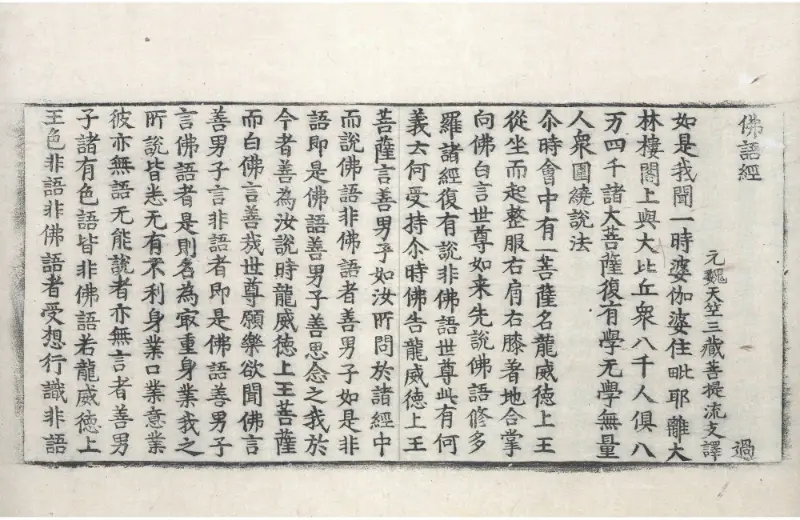 佛語經　過
元魏天竺三藏菩提流支譯
如是我聞一時婆伽婆住毗耶離大
林樓閣上與大比丘衆八千人俱八
万四千諸大菩薩復有學无學無量
人衆圍繞說法
尒時會中有一菩薩名龍威德上王
從坐而起整服右肩右膝著地合掌
向佛白言世尊如来先說佛語修多
羅諸經復有說非佛語世尊此有何
義云何受持尒時佛告龍威德上王
菩薩言善男子如汝所問於諸經中
而說佛語非佛語者善男子如是非
語即是佛語善男子善思念之我於
今者善為汝說時龍威德上王菩薩
而白佛言善哉世尊願樂欲聞佛言
善男子言非語者即是佛語善男子
言佛語者是則名為冣重身業我之
所說皆悉无有不利身業口業意業
彼亦無語无能說者亦無言者善男
子諸有色語皆非佛語若龍威德上
王色非語非佛語者受想行識非語